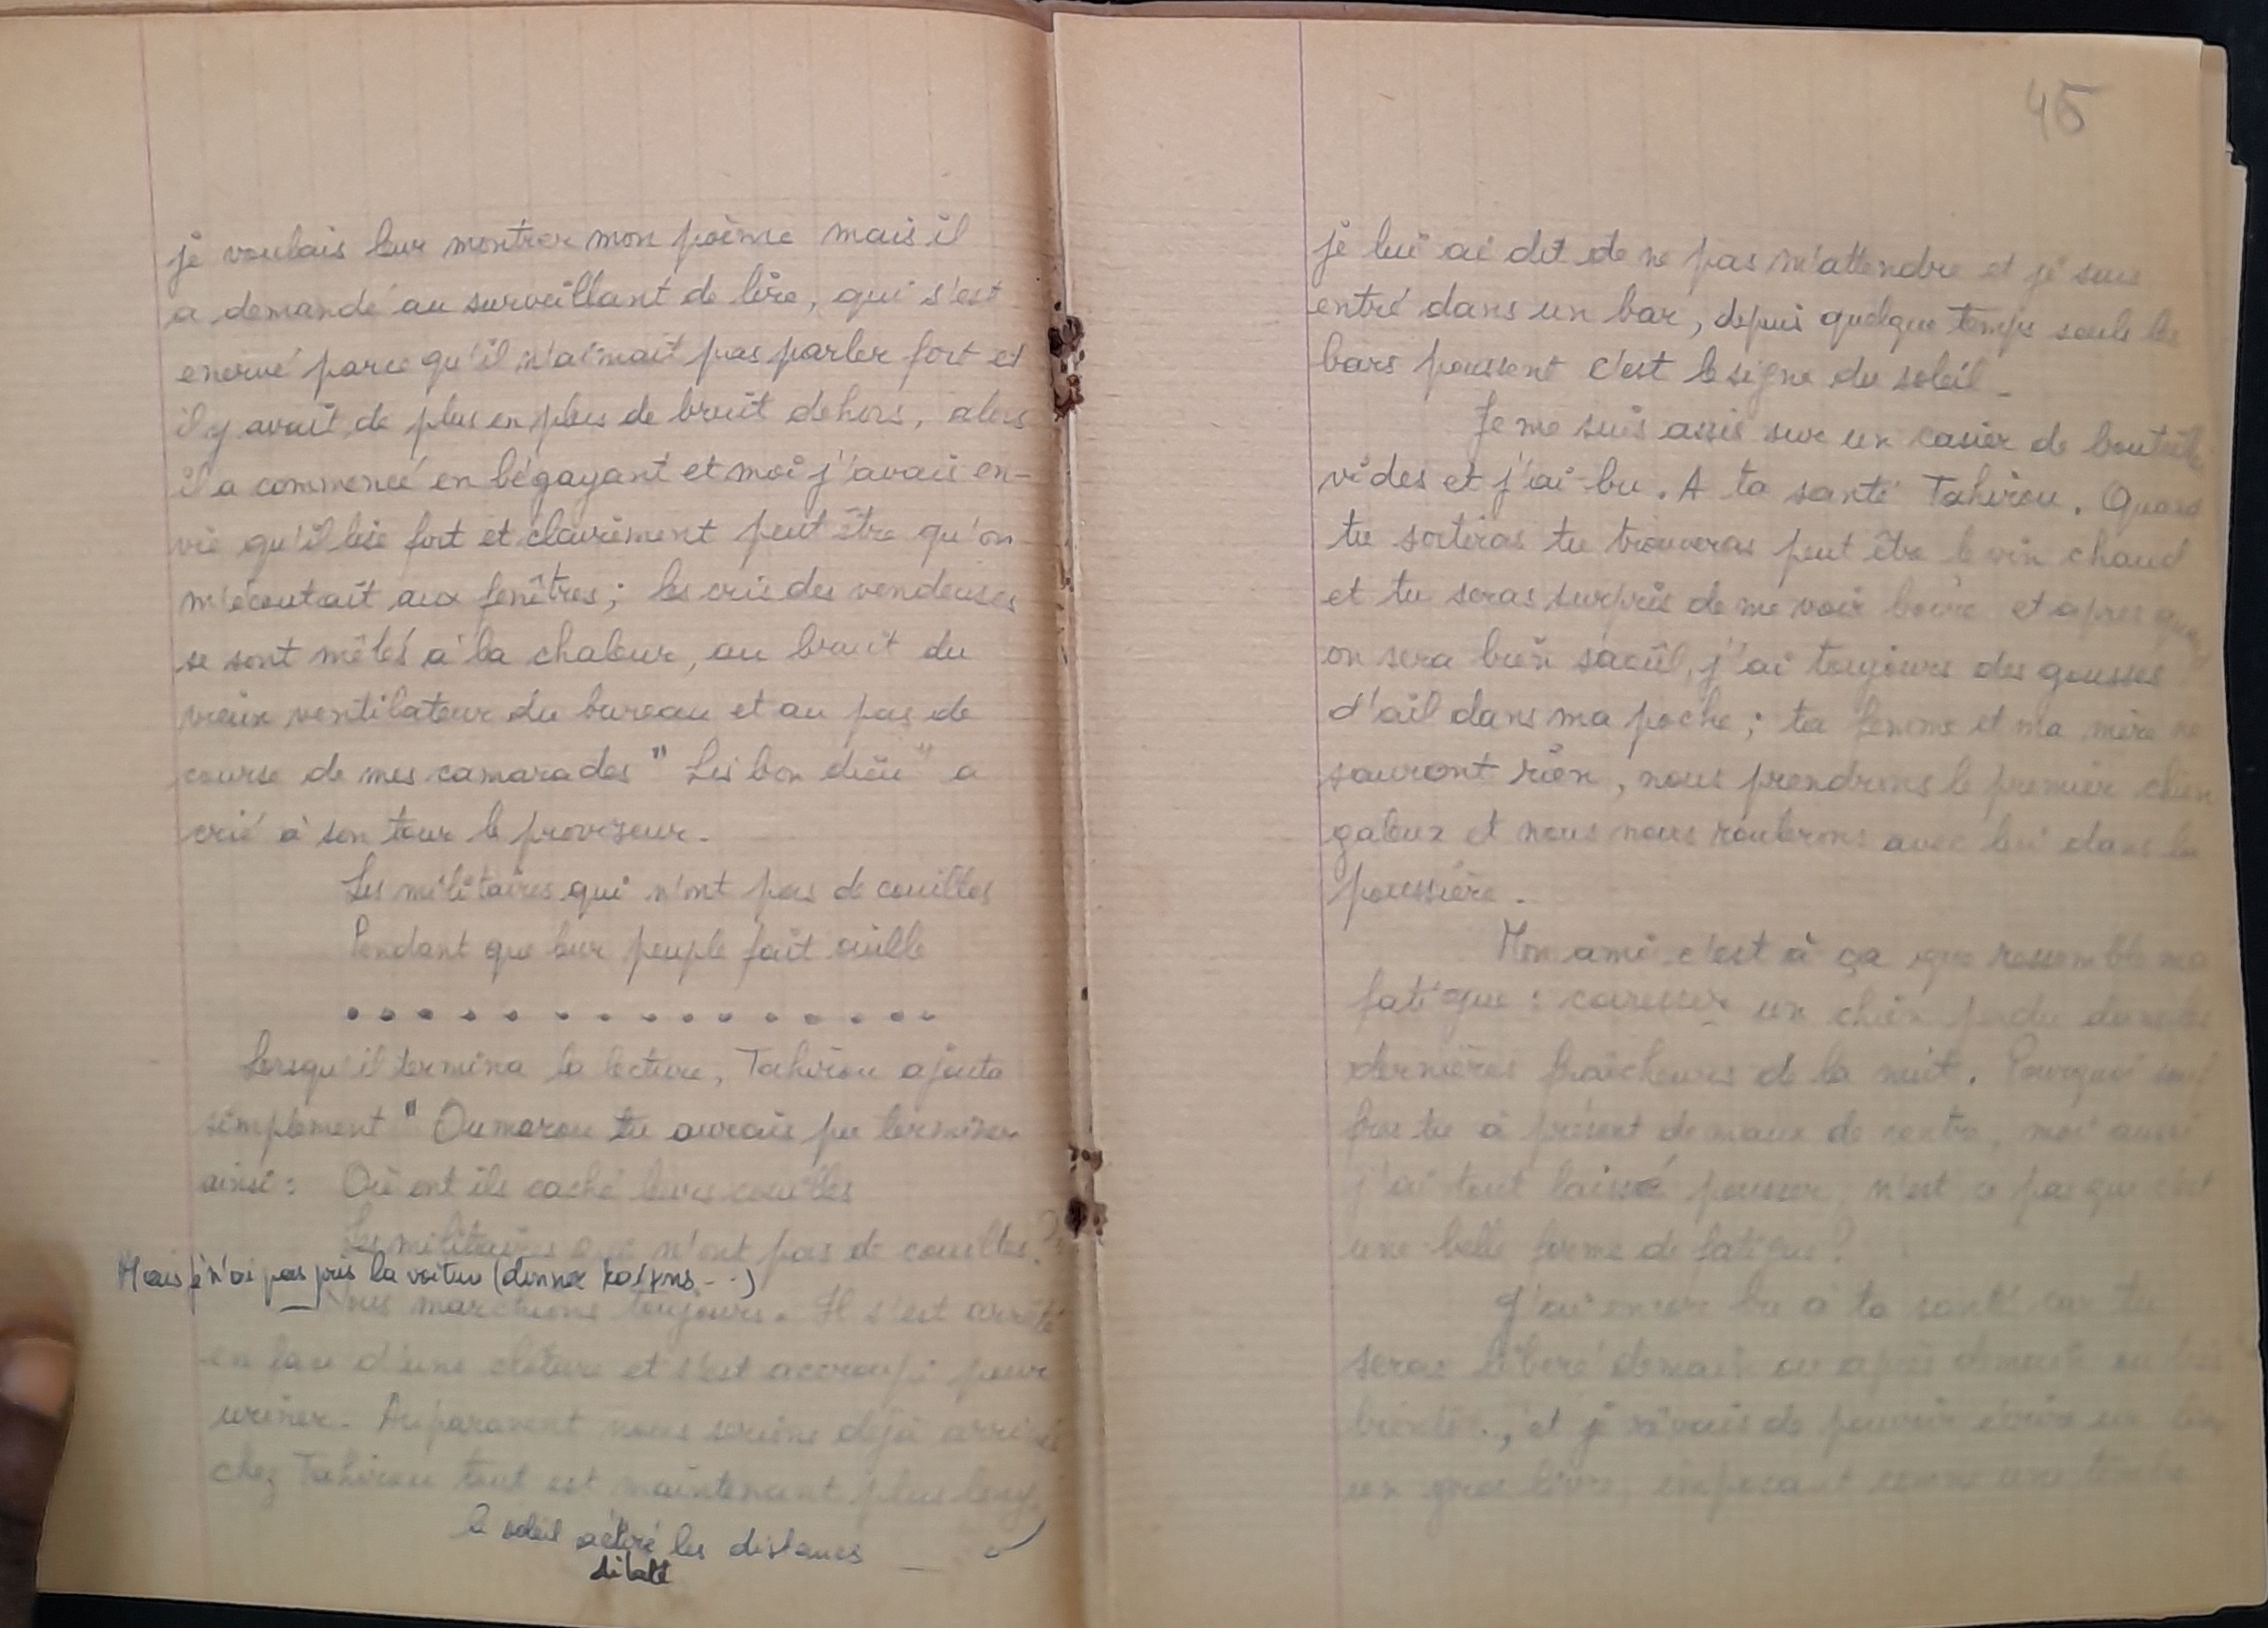 je voulais leur montrer mon poème mais il
a demandé au surveillant de lire, qui s'est
enervé parce qu'il n'aimait pas parler fort et
il y avait de plus en plus de bruit dehors, alors
il a commencé en bégayant et moi j'avais en-
vie qu'il lise fort et clairement peut être qu'on
m'écoutait aux fenêtres ; les cris des vendeuses
se sont mêlés à la chaleur, au bruit du
vieux ventilateur du bureau et au pas de
course de mes camarades " Les bon dieu " a
crié à son tour le proviseur.
Les militaires qui n'ont pas de couilles
Pendant que leur peuple fait ouille
. . . . . . . . . . . . . . .
Lorsqu'il termina la lecture, Tahirou ajouta
simplement " Oumarou tu aurais pu terminer
ainsi : Où ont ils caché leurs couilles
Les militaires qui n'ont pas de couilles ?
Mais je n'ai pas pris la voiture (donner
Nous marchions toujours. Il s'est arrêté
en face d'une clôture et s'est accroupi pour
uriner. Auparavant nous serions déjà arrivés
chez Tahirou tout est maintenant plus long,
le soleil a étiré les distances
dilaté
45
je lui ai dit de ne pas m'attendre et je suis
entré dans un bar, depuis quelque temps seuls les
bars poussent c'est le signe du soleil _
Je me suis assis sur un casier de bouteilles
vides et j'ai bu. A ta santé Tahirou. Quand
tu sortiras tu trouveras peut être le vin chaud
et tu seras surpris de me voir boire et après quand
on sera bien saoûl, j'ai toujours des gousses
d'ail dans ma poche ; ta femme et ma mère ne
sauront rien, nous prendrons le premier chien
galeux et nous nous roulerons avec lui dans la
poussière.
Mon ami c'est à ça que ressemble ma
fatigue : caresser un chien perdu dans les
dernières fraîcheurs de la nuit. Pourquoi souf
fres tu à présent de maux de ventre, moi aussi
j'ai tout laissé pousser, n'est ce pas que c'est
une belle forme de fatigue ?
J'ai encore bu à ta santé car tu
seras libéré demain ou après demain ou très
bientôt., et je rêvais de pouvoir écrire un
un gros livre, imposant comme une tombe